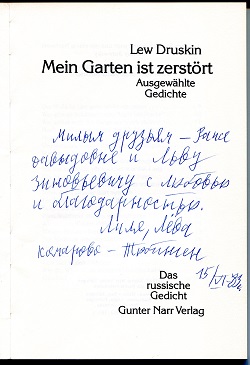 Lew Druskin
Mein Garten ist zerstört
Ausgewählte
Gedichte
Милым друзьям – Рахе
Давыдовне и Льву
Зиновьевичу с любовью
и благодарностью.
Лиля, Лёва
Комарово – Тюбинген
15/VI-83г.
Das
russische
Gedicht
Gunter Narr Verlag